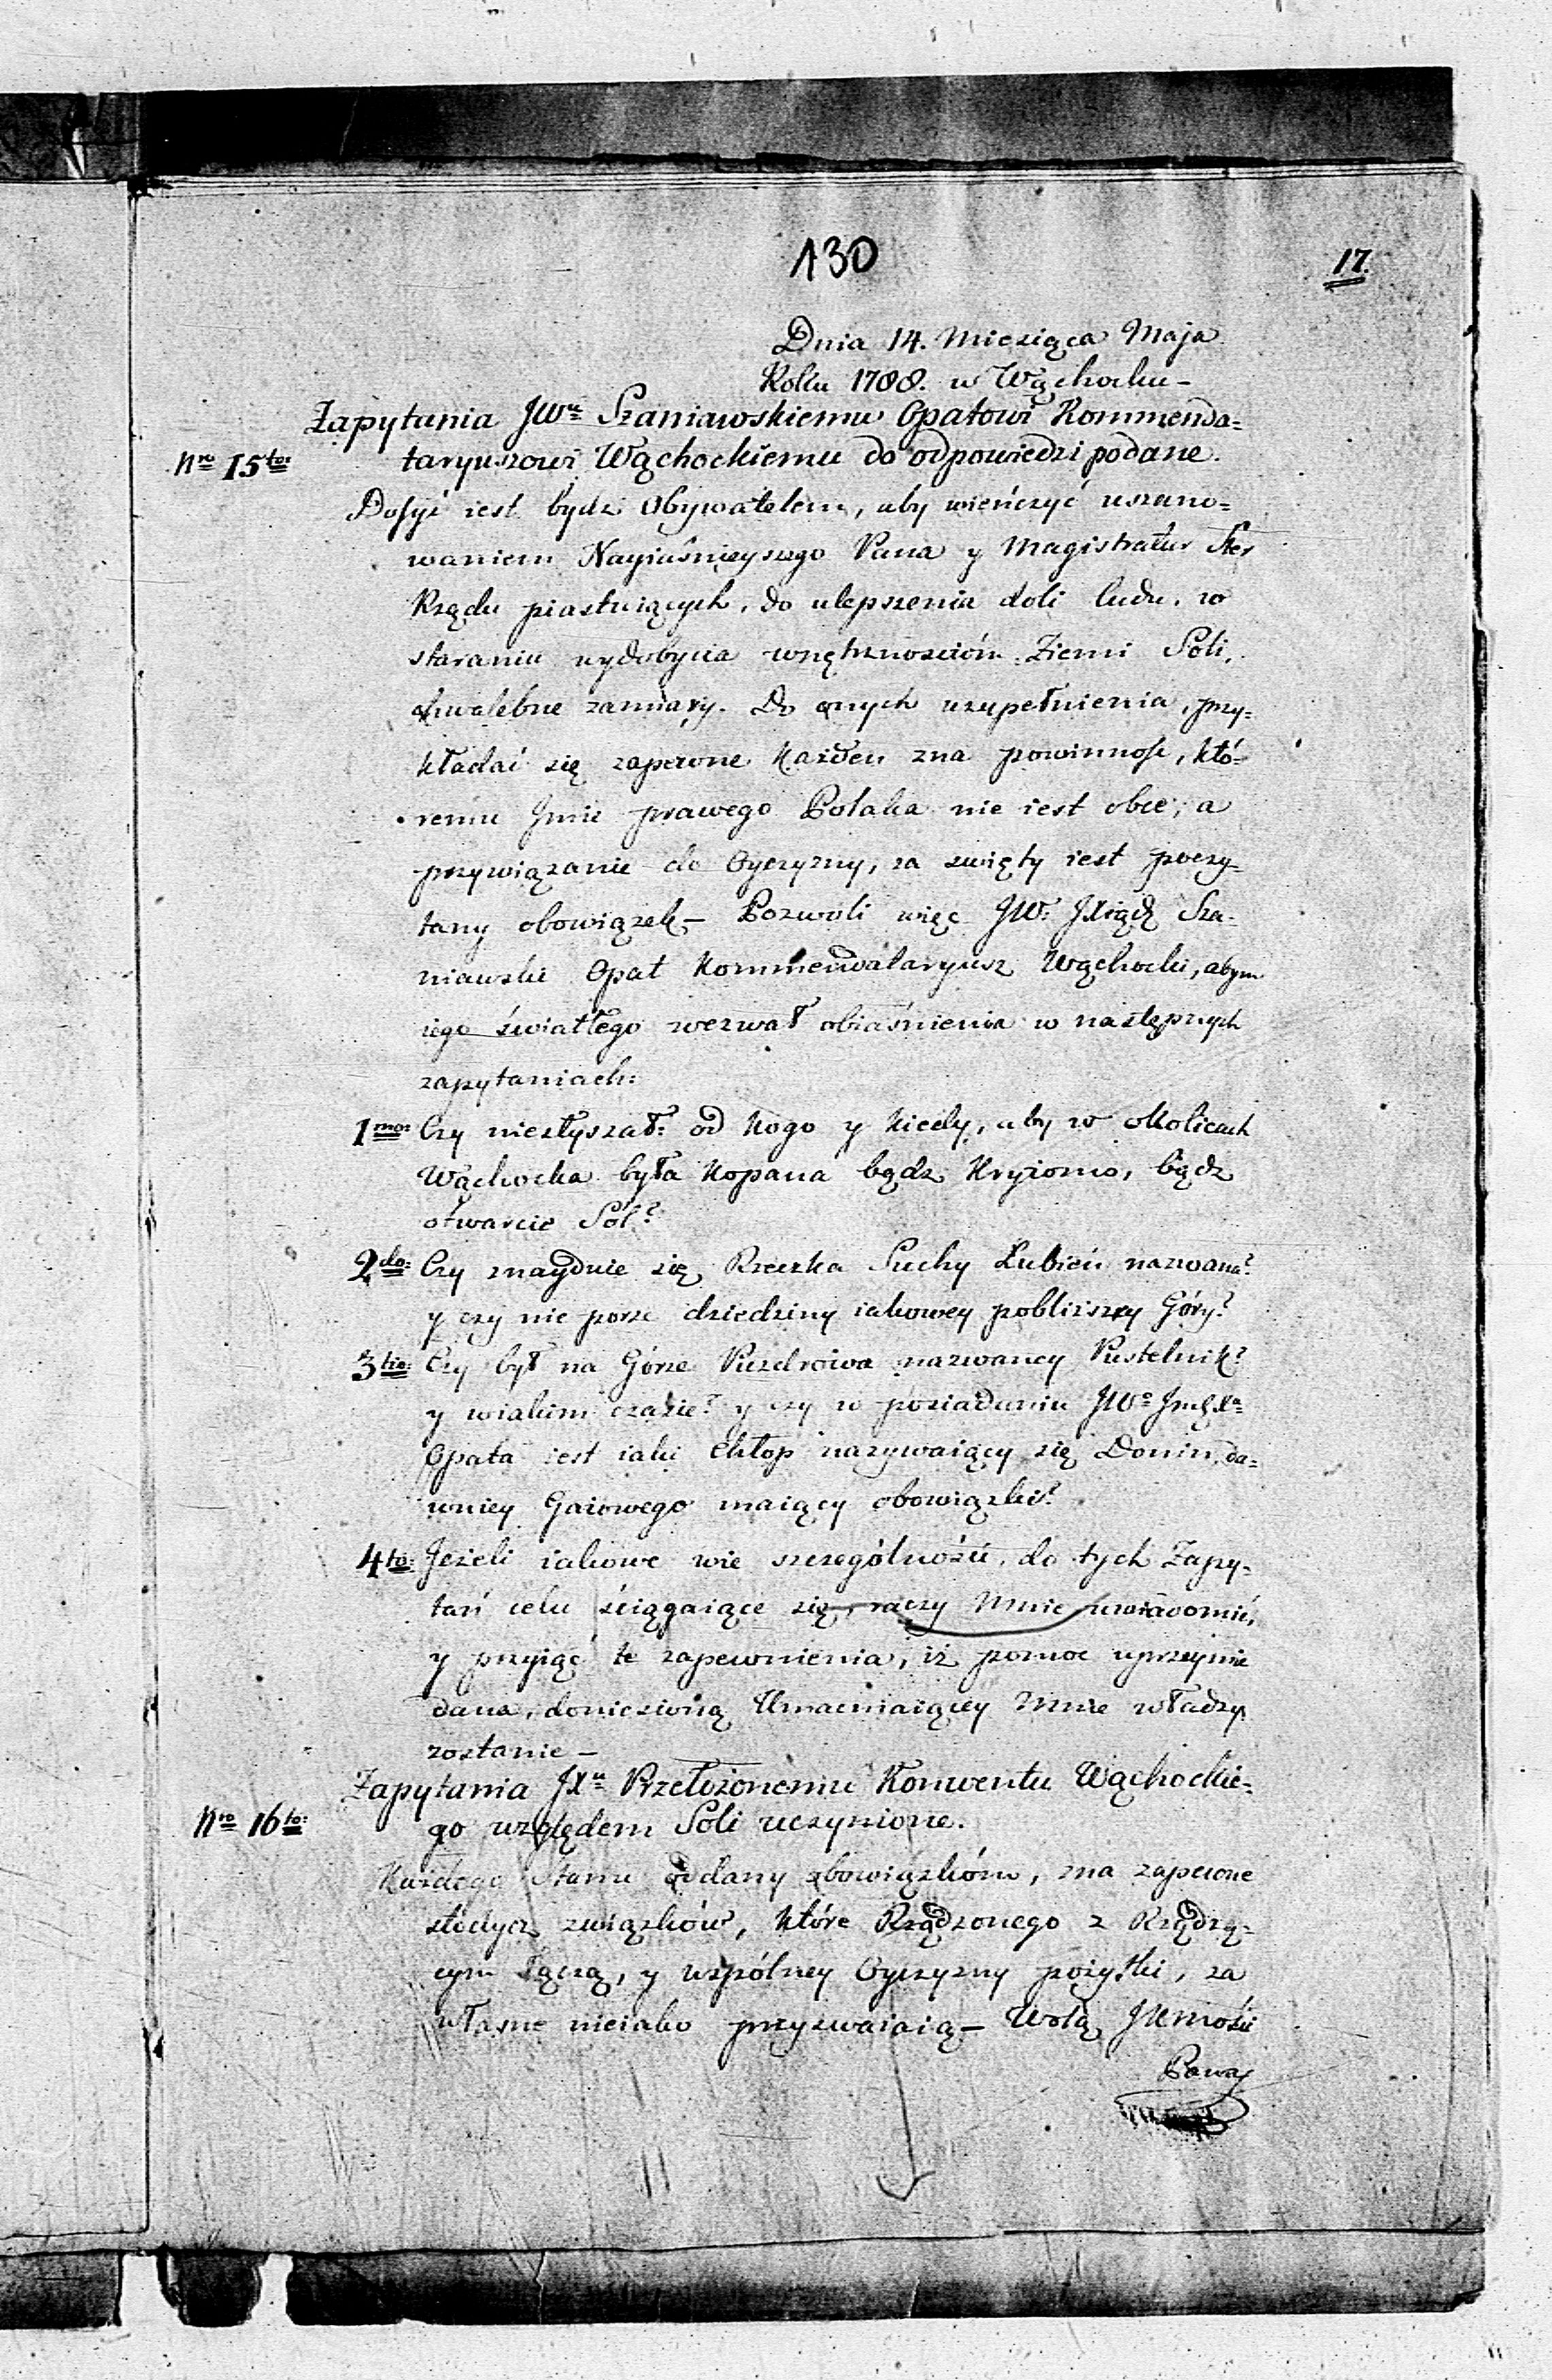 130
17.
Dnia 14. Miesiąca Maja
Roku 1788. w Wąchocku –
Zapytania JWu Szaniawskiemu Opatowi Kommenda=
Nro 15to: taryuszowi Wąchockiemu do odpowiedzi podane.
Dosyć iest bydz Obywatelem, aby wieńczyć uszano=
waniem Nayiaśnieyszego Pana y Magistratur Ster
Rządu piastuiących, do ulepszenia doli ludu, w
staraniu wydobycia wnętrznościów Ziemi Soli,
chwalebne zamiary. Do onych uzupełnienia, przy=
kładać się zapewne każden zna powinność, któ=
remu Jmie prawego Polaka nie iest obce, a
przywiązanie do Oyczyzny, za święty iest poczy=
tany obowiązek – Pozwoli więc JW: JXiądz Sza=
niawski Opat Kommendataryusz Wąchocki, abym
iego światłego wezwał obiaśnienia w następnych
zapytaniach:
1mo: Czy niesłyszał od kogo y kiedy, aby w okolicach
Wąchocka była kopana bądz kryiomo, bądz
otwarcie Sól?
2do: Czy znayduie się Rzeczka Suchy Łubień nazwana?
y czy nie porze dziedziny iakowey pobliższey Góry?
3tio: Czy był na Górze Puzdrowa nazwaney Pustelnik?
y wiakim czasie? y czy w posiadaniu JWo JmęXa
Opata iest iaki Chłop nazywaiący się Donin, da=
wniey Gaiowego maiący obowiązki?
4to: Jeżeli iakowe wie szczególności, do tych Zapy=
tań celu ściągaiące się, raczy Mnie uwiadomić,
y przyiąć te zapewnienia, iż pomoc uprzeymie
dana, doniesioną Umacniaiącey Mnie władzy
zostanie –
Zapytania JXu Przełożonemu Konwentu Wąchockie=
Nro 16to: go względem Soli uczynione.
Każdego Stanu oddany obowiązkóm, zna zapewne
słodycz związków, które Rządzonego z Rządzą=
cym łączą, y wspólney Oyczyzny pożytki, za
własne nieiako przyswaiaią – Wolą JKMości
Pana